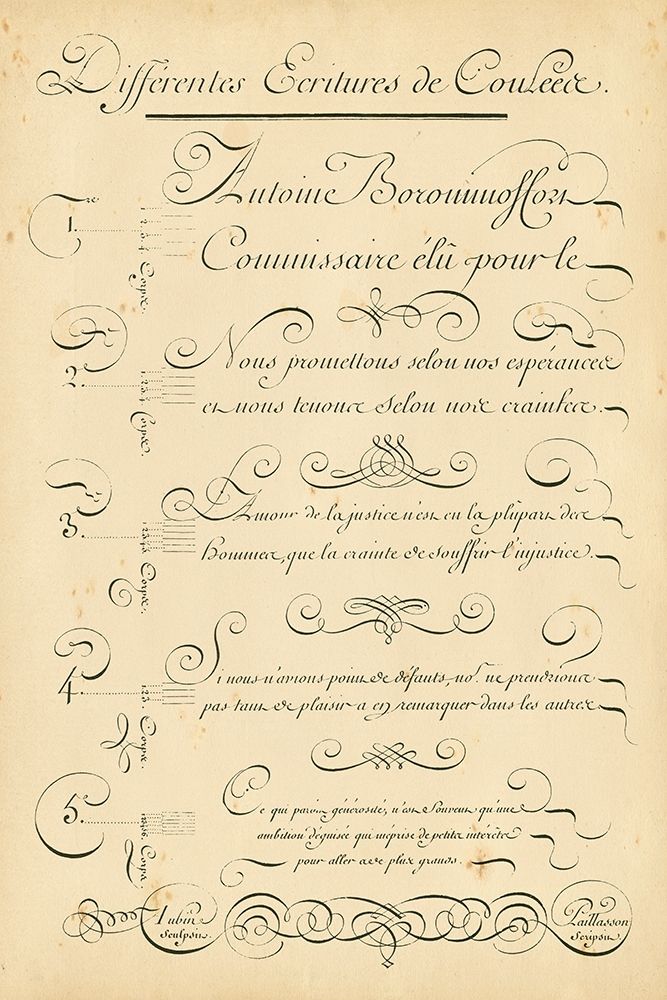 Différentes Ecritures de Coulées.
1.re
1. 2. 3. 4 Corps.
Antoine
Commissaire élû pour le
2.e
1. 2. 3. 4 Corps.
Nous promettons selon nos espérances
et nous tenons selon nos craintes.
3.e
1. 2. 3. 4. 5 Corps.
L'Amour de la justice n'est en la plûpart des
hommes, que la crainte de souffrir l'injustice.
4.e
1. 2. 3. Corps.
Si nous n'avions point de défauts, no.s ne prendrions
pas tant de plaisir a en remarquer dans les autres
5.e
Corps
Ce qui paroit générosité, n'est souvent qu'une
ambition déguisée qui méprise de petits intérêts
pour aller a de plus grands.
Aubin Sculpsit.
Paillasson Scripsit.